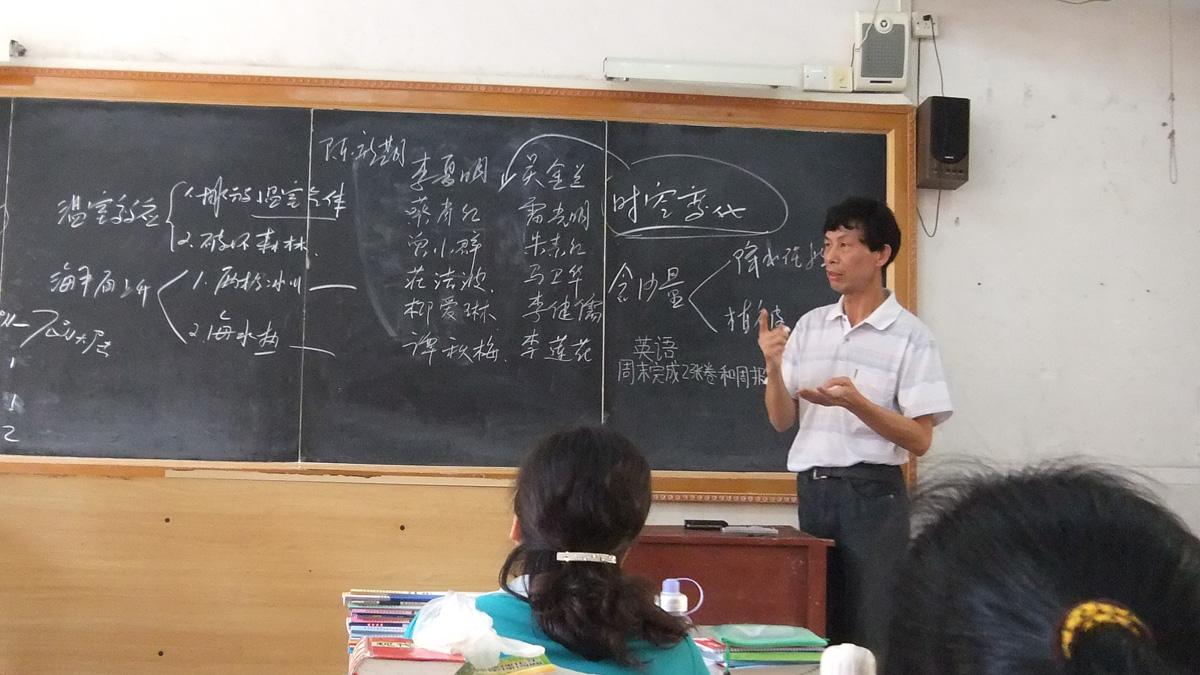 温室效应
1.排放温室气体
2.破坏森林
海平面上升
1.两极冰川
2.海水热
1
1
2
李夏明 吴金兰
朱素红
庄洁波 马卫华
柳爱琳 李健儒
谭秋梅 李莲花
时空变化
含沙量
降水
植被
英语
周末完成2张卷和周报